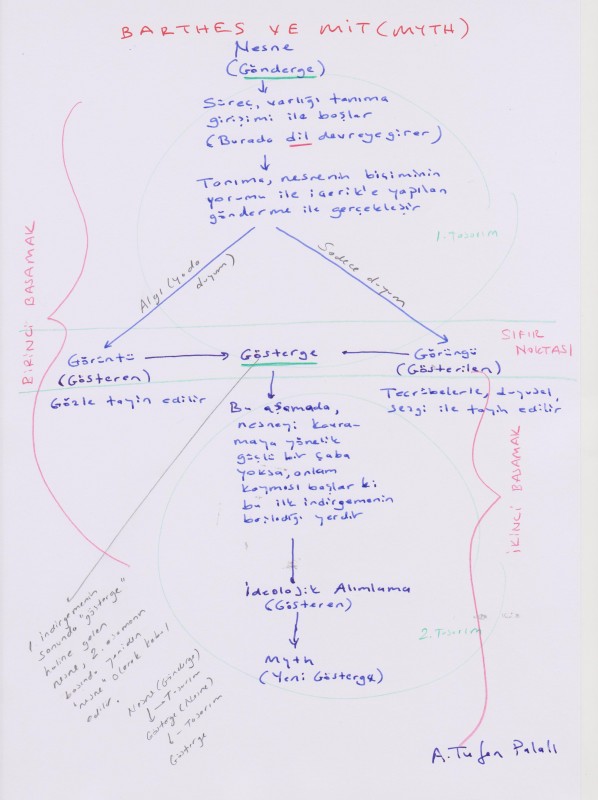 BARTHES VE MİT (MYTH)
Nesne
(Gönderge)
Süreç, varlığı tanıma
girişimi ile başlar
(Burada dil devreye girer)
Tanıma, nesnenin biçiminin
yorumu ile içerik'e yapılan
gönderme ile gerçekleşir
1. Tasarım
Algı (ya da
duyum)
Sadece duyum
BİRİNCİ BASAMAK
SIFIR
NOKTASI
Görüntü
(Gösteren)
Gözle tayin edilir
Gösterge
Görüngü
(Gösterilen)
Tecrübelerle, duyusal,
sezgi ile tayin edilir
Bu aşamada,
nesneyi kavra-
maya yönelik
güçlü bir çaba
yoksa, anlam
kayması başlar ki
bu ilk indirgemenin
başladığı yerdir
İKİNCİ BASAMAK
İdeolojik Alımlama
(Gösteren)
2. Tasarım
Myth
(Yeni Gösterge)
1. indirgemenin
sonunda "gösterge"
haline gelen
nesne, 2. aşamanın
başında yeniden
"nesne" olarak kabul
edilir.
Nesne (Gönderge)
Tasarım
Gösterge (Nesne)
Tasarım
Gösterge
A. Tufan Palalı